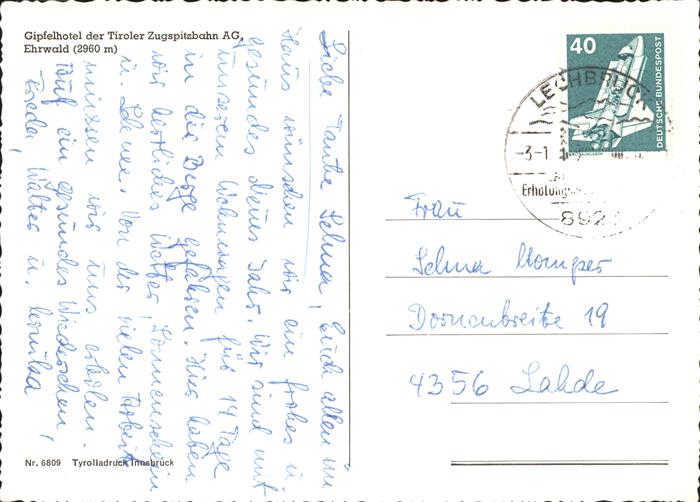 Gipfelhotel der Tiroler Zugspitzbahn AG,
Ehrwald (2960 m)
Liebe Tante Selma, Euch allen im
Haus wünschen wir ein frohes u.
gesundes neues Jahr. Wir sind mit
unserem Wohnwagen für 14 Tage
in die Berge gefahren. Hier haben
wir herrliches Wetter, Sonnenschein
u. Schnee. Von der vielen Arbeit
müssen wir uns erholen.
Auf ein gesundes Wiedersehen,
Frieda, Walter u.
Nr. 6809 Tyrolladruck Innsbruck
40
DEUTSCHE BUNDESPOST
LECHBRUCK
-3-1.
Erholungs
892
Frau
Selma Komper
Dornenbreite 19
4356 Lahde